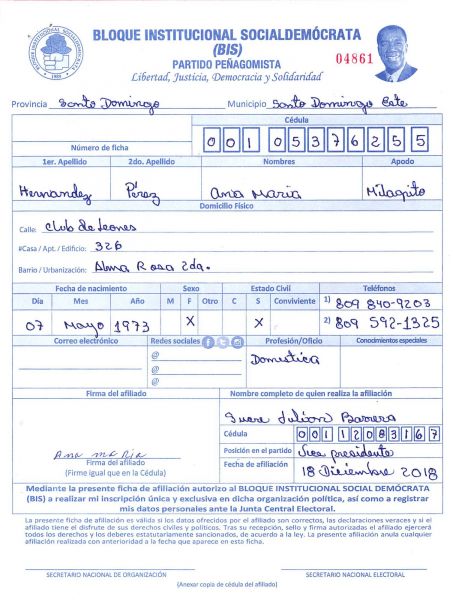 BLOQUE INSTITUCIONAL SOCIALDEMÓCRATA
(BIS)
PARTIDO PEÑAGOMISTA
Libertad, Justicia, Democracia y Solidaridad
04861
Provincia Santo Domingo Municipio Santo Domingo Este
Cédula
Número de ficha 001 0537625 5
1er. Apellido 2do. Apellido Nombres Apodo
Hernandez Pérez Ana María Milagito
Domicilio Físico
Calle: Club de Leones
#Casa / Apt. / Edificio: 326
Barrio / Urbanización: Alma Rosa 2da.
Fecha de nacimiento Sexo Estado Civil Teléfonos
Día Mes Año M F Otro C S Conviviente 1) 809 840-9203
07 Mayo 1973 X X 2) 809 592-1325
Correo electrónico Redes sociales Profesión/Oficio Conocimientos especiales
@ Domestica
@
@
Firma del afiliado Nombre completo de quien realiza la afiliación
Barrera
Cédula 001 1208316 7
Ana Ma Ria
Posición en el partido Vice presidente
Firma del afiliado
(Firme igual que en la Cédula)
Fecha de afiliación 18 Diciembre 2018
Mediante la presente ficha de afiliación autorizo al BLOQUE INSTITUCIONAL SOCIAL DEMÓCRATA
(BIS) a realizar mi inscripción única y exclusiva en dicha organización política, así como a registrar
mis datos personales ante la Junta Central Electoral.
La presente ficha de afiliación es válida si los datos ofrecidos por el afiliado son correctos, las declaraciones veraces y si el
afiliado tiene el disfrute de sus derechos civiles y políticos. Tras su recepción, sello y firma autorizadas el afiliado ejercerá
todos los derechos y los deberes estatutariamente sancionados, de acuerdo a la ley. La presente afiliación anula cualquier
afiliación realizada con anterioridad a la fecha que aparece en esta ficha.
SECRETARIO NACIONAL DE ORGANIZACIÓN SECRETARIO NACIONAL ELECTORAL
(Anexar copia de cédula del afiliado)